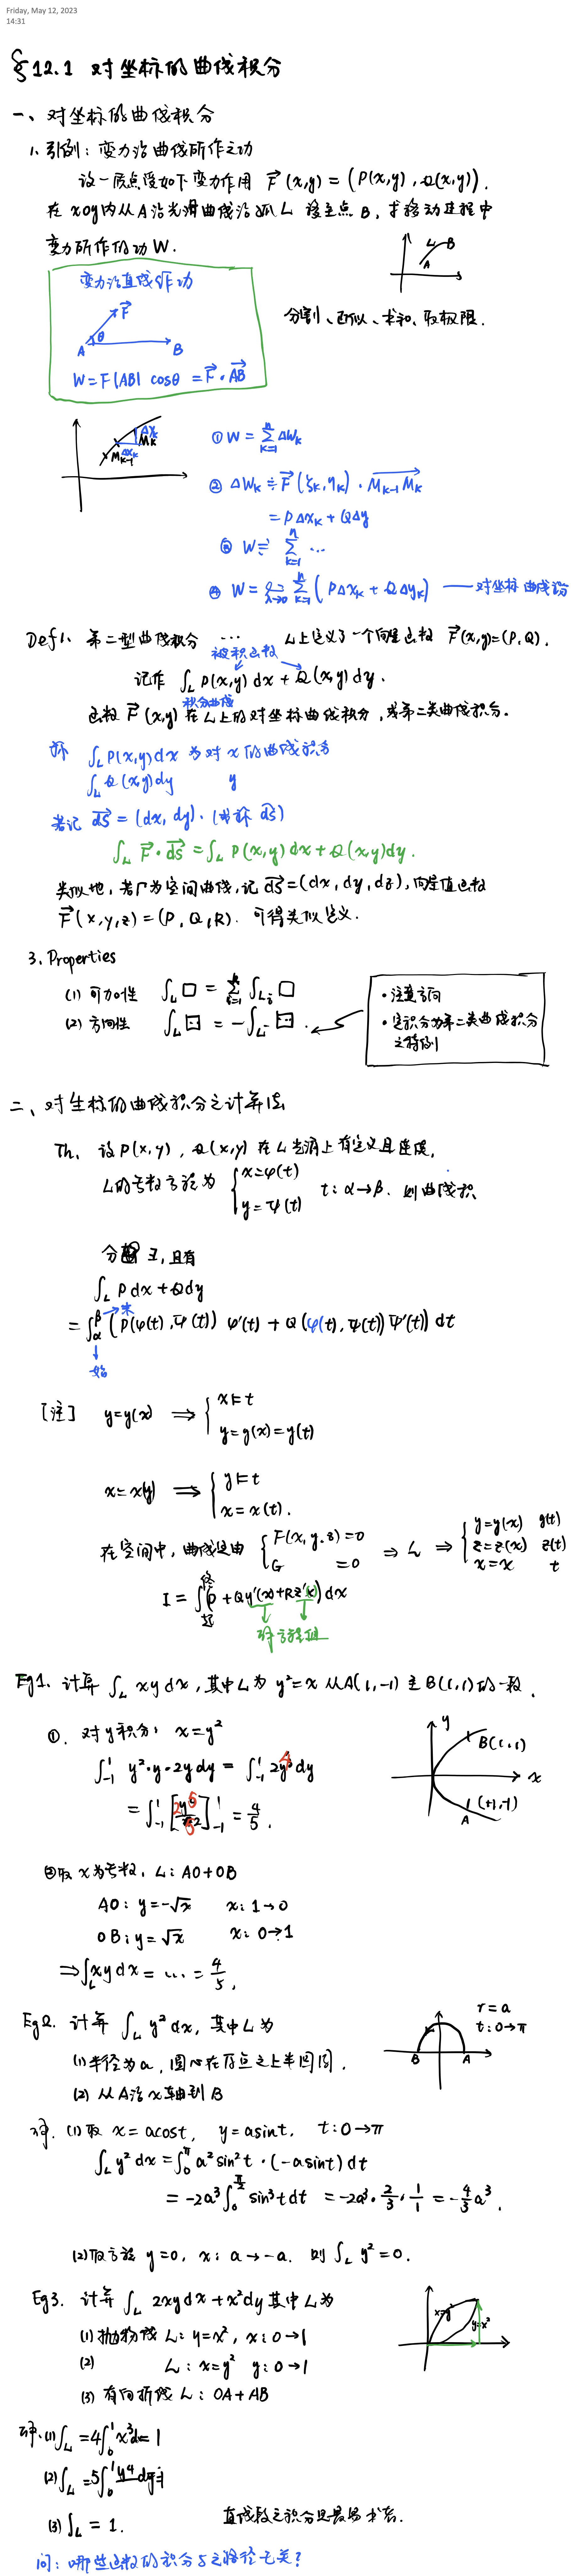 Friday, May 12, 2023
14:31
§12.1 对坐标的曲线积分
一、对坐标的曲线积分
1. 引例：变力沿曲线所作之功
设一质点受如下变力作用 F⃗(x,y) = (P(x,y), Q(x,y)).
在 xoy内从A沿光滑曲线沿弧L 移至点B, 求移动过程中
变力所作的功W.
L B
A
变力沿直线所作功
F⃗
θ
A B
W = F|AB| cosθ = F⃗ · AB⃗
分割、近似、求和、取极限.
Δy_k
M_k
Δx_k
M_{k-1}
① W = Σ_{k=1}^{n} ΔW_k
② ΔW_k ≑ F⃗(ξ_k, η_k) · M_{k-1}M_k⃗
= PΔx_k + QΔy
③ W ≑ Σ_{k=1}^{n} ...
④ W = lim_{λ→0} Σ_{k=1}^{n} (PΔx_k + QΔy_k) —— 对坐标曲线积
Def 1. 第二型曲线积分 ... L上定义了一个向量函数 F⃗(x,y)=(P,Q).
被积函数
记作 ∫_L P(x,y) dx + Q(x,y) dy.
积分曲线
函数 F⃗(x,y) 在L上的对坐标曲线积分, 或第二类曲线积分.
称 ∫_L P(x,y)dx 为对 x 的曲线积分
∫_L Q(x,y)dy y
若记 ds⃗ = (dx, dy). (或称 ds⃗)
∫_L F⃗ · ds⃗ = ∫_L P(x,y)dx + Q(x,y)dy.
类似地, 若Γ为空间曲线, 记 ds⃗ = (dx, dy, dz), 向量值函数
F⃗(x,y,z) = (P, Q, R). 可得类似定义.
3. Properties
(1) 可加性 ∫_L □ = Σ_{i=1}^{k} ∫_{L_i} □
(2) 方向性 ∫_L □ = -∫_{L^-} □.
• 注意方向
• 定积分为第二类曲线积分
之特例
二、对坐标的曲线积分之计算法
Th. 设 P(x,y), Q(x,y) 在L光滑上有定义且连续,
L的参数方程为 { x=φ(t)
y=ψ(t) t: α→β. 则曲线积
分 ∃, 且有
∫_L Pdx + Qdy
= ∫_α^β (P(φ(t), ψ(t)) φ'(t) + Q(φ(t), ψ(t)) ψ'(t)) dt
→末
始
[注] y=y(x) ⟹ { x=t
y=y(x)=y(t)
x=x(y) ⟹ { y=t
x=x(t).
在空间中, 曲线是由 { F(x,y,z)=0
G =0 ⇒ L ⇒ { y=y(x) y(t)
z=z(x) z(t)
x=x t
I = ∫_起^终 (P + Qy'(x) + Rz'(x)) dx
解方程组
Eg1. 计算 ∫_L xy dx, 其中L为 y²=x 从A(1,-1) 至 B(1,1)的一段.
①. 对y积分: x=y²
∫_{-1}^{1} y²·y·2y dy = ∫_{-1}^{1} 2y⁴ dy
= [2y⁵/5]_{-1}^{1} = 4/5.
y
B(1,1)
x
(+1,-1)
A
②取 x为参数, L: AO+OB
AO: y=-√x x: 1→0
OB: y=√x x: 0→1
⇒ ∫_L xy dx = ... = 4/5.
Eg2. 计算 ∫_L y² dx, 其中L为
(1) 半径为a, 圆心在原点之上半圆周.
(2) 从A沿x轴到B
r=a
t: 0→π
B A
解. (1) 取 x=acost, y=asint, t: 0→π
∫_L y² dx = ∫_0^π a² sin²t · (-asint) dt
= -2a³ ∫_0^{π/2} sin³t dt = -2a³ · 2/3 · 1/1 = -4/3 a³.
(2) 取方程 y=0, x: a→-a. 则 ∫_L y² = 0.
Eg3. 计算 ∫_L 2xydx + x²dy 其中L为
(1) 抛物线 L: y=x², x: 0→1
(2) L: x=y² y: 0→1
(3) 有向折线 L: OA+AB
x=y²
y=x²
解. (1) ∫_L = 4∫_0^1 x³d = 1
(2) ∫_L = 5∫_0^1 y⁴ dy=1
(3) ∫_L = 1.
直线段之积分是最易求
问: 哪些函数的积分与之路径无关?